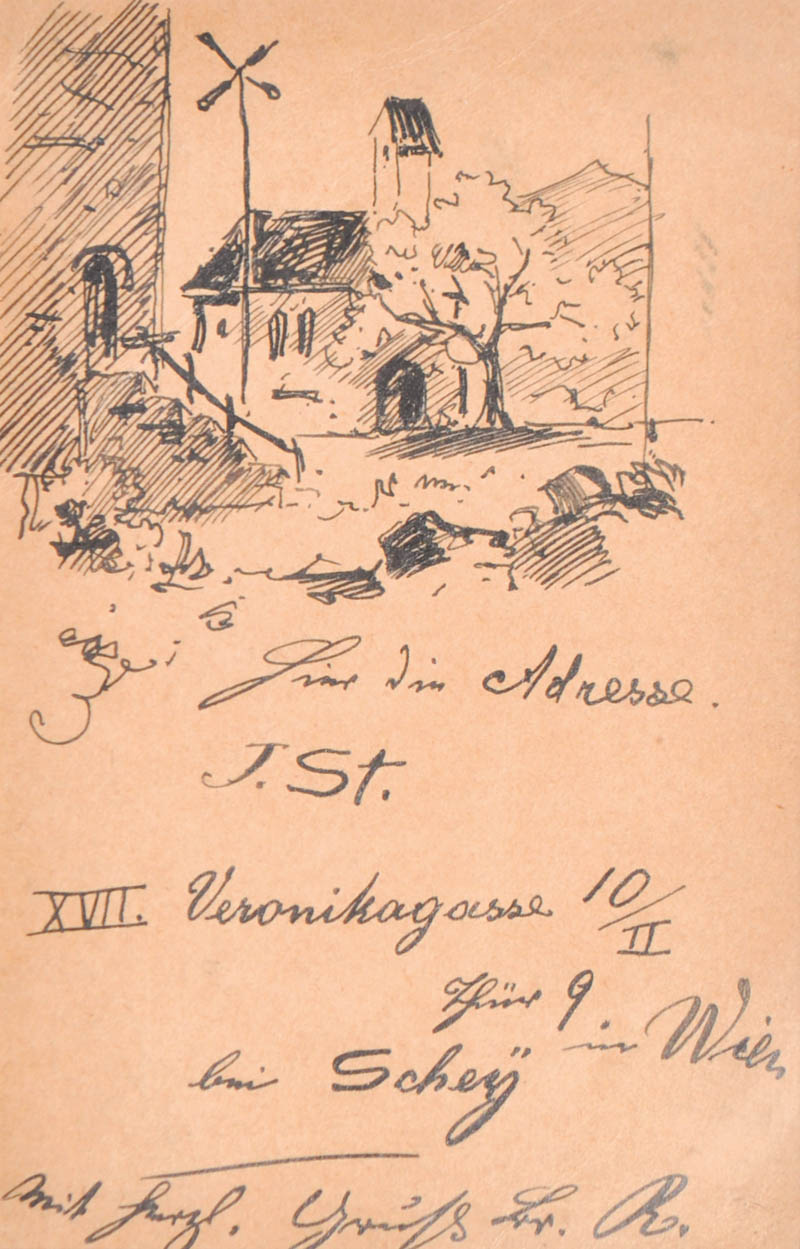 Hier die Adresse.
J. St.
XVII. Veronikagasse 10/II
Thür 9
bei Scheÿ in Wien
Mit herzl. Gruß Br. R.